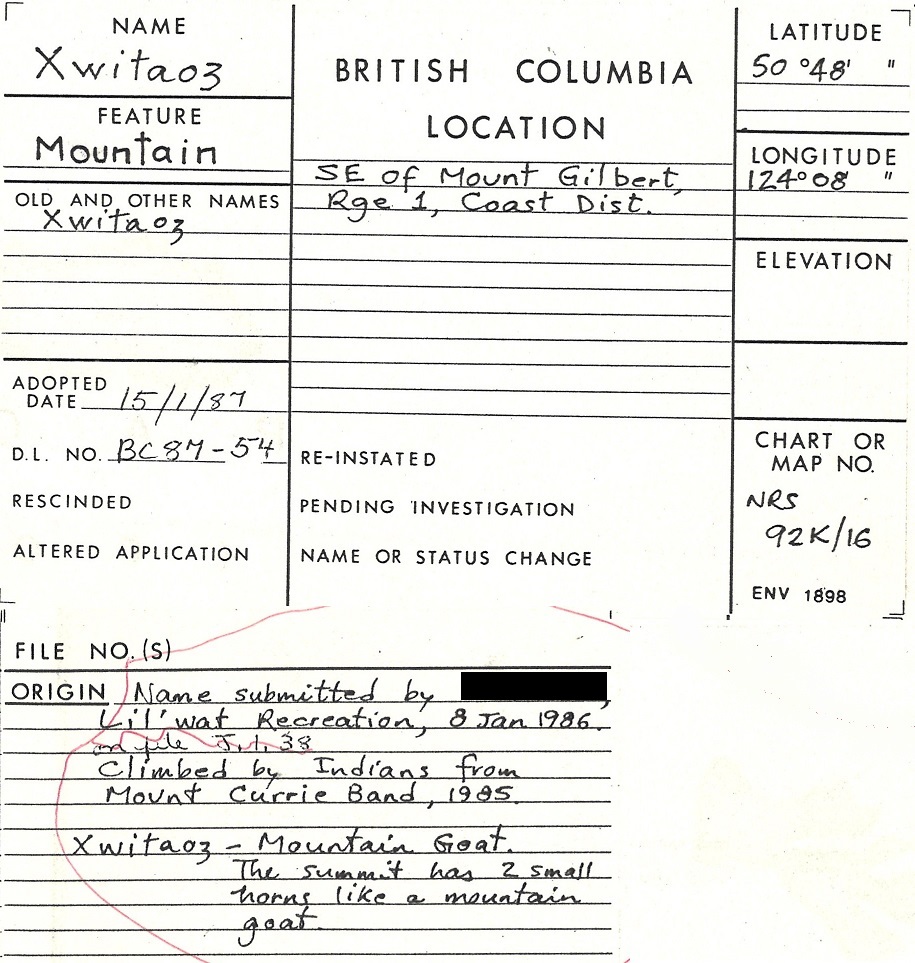 NAME
Xwitaoz
FEATURE
Mountain
OLD AND OTHER NAMES
Xwitaoz
ADOPTED
DATE 15/1/87
D.L. NO. BC87-54
RESCINDED
ALTERED APPLICATION
BRITISH COLUMBIA
LOCATION
SE of Mount Gilbert,
Rge 1, Coast Dist.
RE-INSTATED
PENDING INVESTIGATION
NAME OR STATUS CHANGE
LATITUDE
50°48' "
LONGITUDE
124°08 "
ELEVATION
CHART OR
MAP NO.
NRS
92K/16
ENV 1898
FILE NO.(S)
ORIGIN Name submitted by ,
Lil'wat Recreation, 8 Jan 1986.
on file J.1.38
Climbed by Indians from
Mount Currie Band, 1985.
Xwitaoz - Mountain Goat.
The summit has 2 small
horns like a mountain
goat.